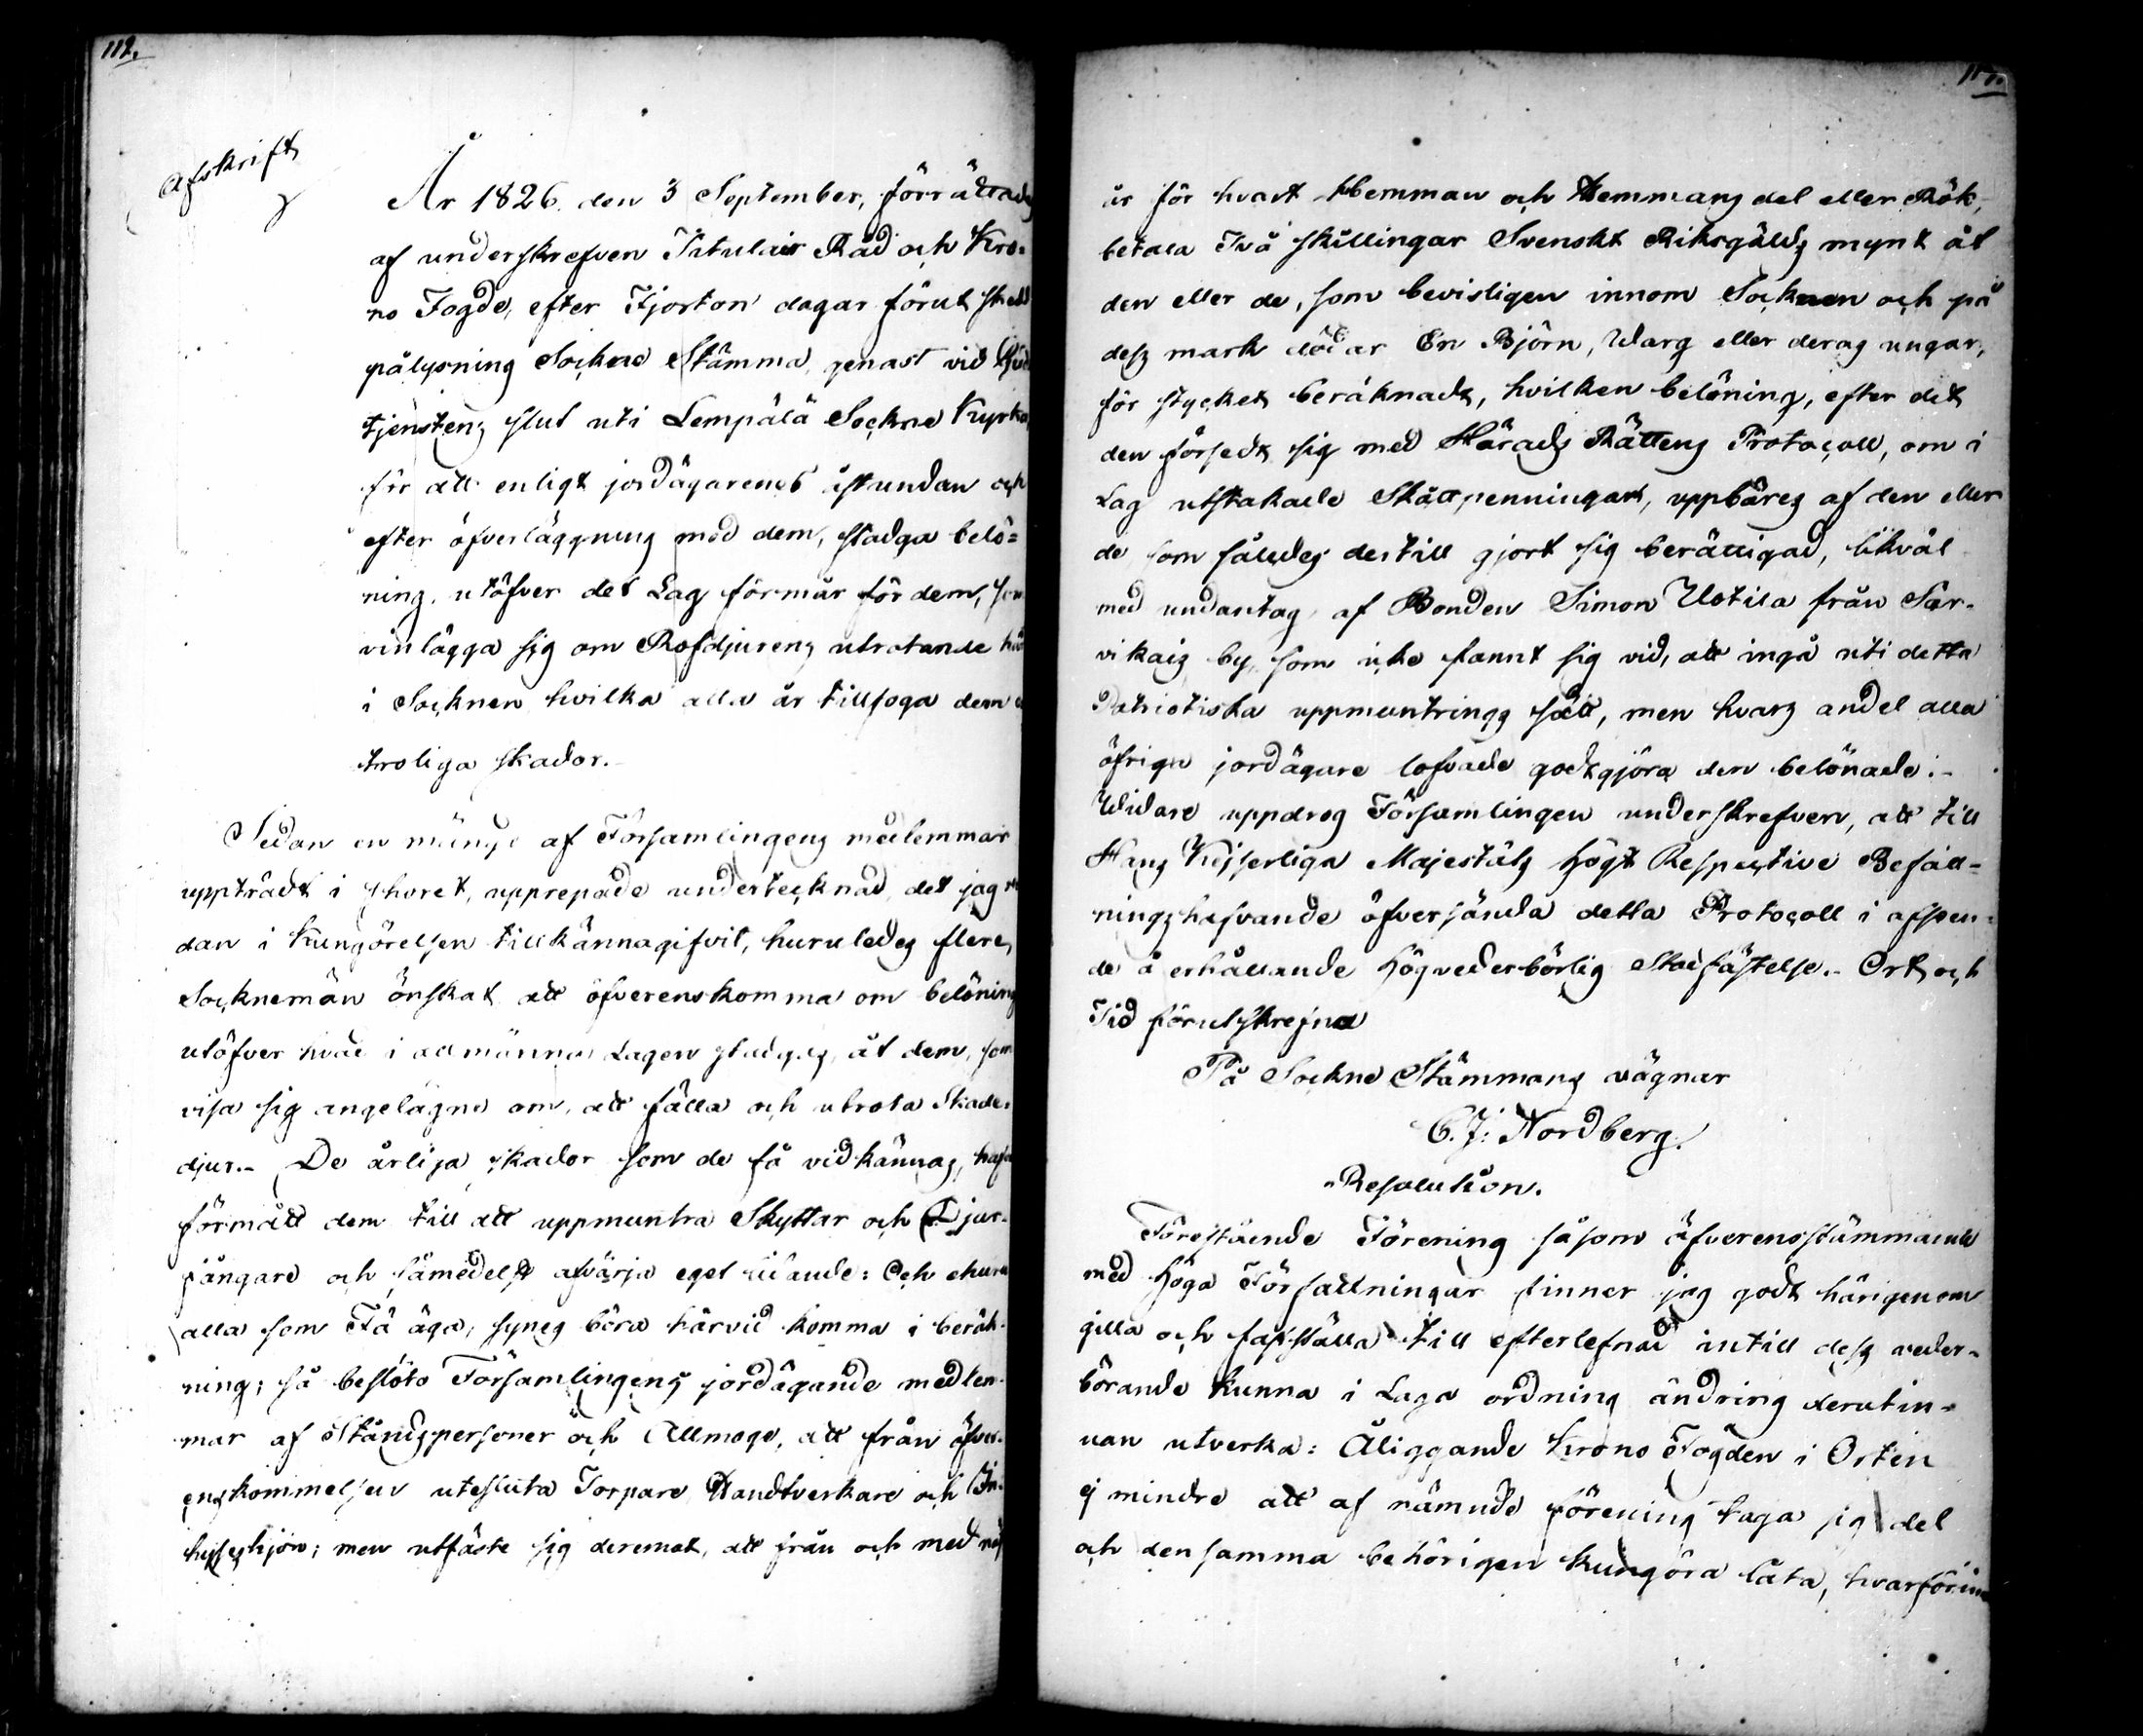 112.
Afskrift
År 1826. den 3 September, förrättades
af underskrefven Titulair Råd och Kro-
no Fogde, efter Fjorton dagar förut skedd
pålysning Sockne Stämma, genast vid Gud
tjenstens slut uti Lempälä Sockne Kyrka
för att enligt jordägarenes åstundan och
efter öfverläggning med dem, stadga belö=
ning, utöfver det Lag förmår för dem, som
vinlägga sig om Rofdjurens utrotande här
i Socknen hvilka alla år tillfoga dem
troliga skador.
Sedan en mängd af Församlingens medlemmar
uppträdt i choret, upprepade undertecknad, det jag re
dan i Kungörelsen tillkännagifvit, huruledes flere,
Socknemän önskat att öfverenskomma om belöning
utöfver hvad i allmänna Lagen stadgas, åt dem, som
visa sig angelägne om, att fälla och utrota Skade-
djur.- De årliga skador som de få vidkännas, hafva
förmått dem till att uppmuntra Skyttar och Djur-
fångare och såmedelst afvärja eget lidande: Och ehuru
alla som Fä äga, synes böra härvid komma i beräk-
ning; så beslöto Församlingens jordägande medlem-
mar af Ståndspersoner och Allmoge, att från öfver-
enskommelsen utesluta Torpare Handtverkare och In-
hyseshjon; men utfäste sig deremot, att från och med näs
år för hvart Hemman och Hemmans del eller Rök,
betala Två skillingar Svenskt Riksgälds mynt åt
den eller de, som bevisligen innom Socknen och på
dess mark dödar En Björn, Warg eller deras ungar,
för stycket beräknadt, hvilken belöning, efter det
den försedt sig med Härads Rättens Protocoll, om i
Lag utstakade Skåttpenningar, uppbäres af den eller
de som således dertill gjort sig berättigad, likväl
med undantag af Bonden Simon Uotila från Sar-
vikais by, som icke fannt sig vid, att ingå uti detta
Patriotiska uppmuntrings sätt, men hvars andel alla
öfriga jordägare lofvade godtgjöra den belönade.-
Widare uppdrog Församlingen underskrefven, att till
Hans Kejserliga Majestäts Högt Respective Befall-
ningshafvande öfversända detta Protocoll i afseen-
de å erhållande Högvederbörlig Stadfästelse.- Ort och
Tid förutskrefna
På Sockne Stämmans vägnar
C. J: Nordberg.
Resolution.
Förestående Förening såsom öfverensstämmande
med Höga Författningar finner jag godt härigenom
gilla och fastställa till efterlefnad intill dess veder-
börande kunna i Laga ordning ändring derutin-
nan utverka: Åliggande Krono Fogden i Orten
ej mindre att af nämnde förening taga sig del
och densamma behörigen kungöra låta, hvarförinn